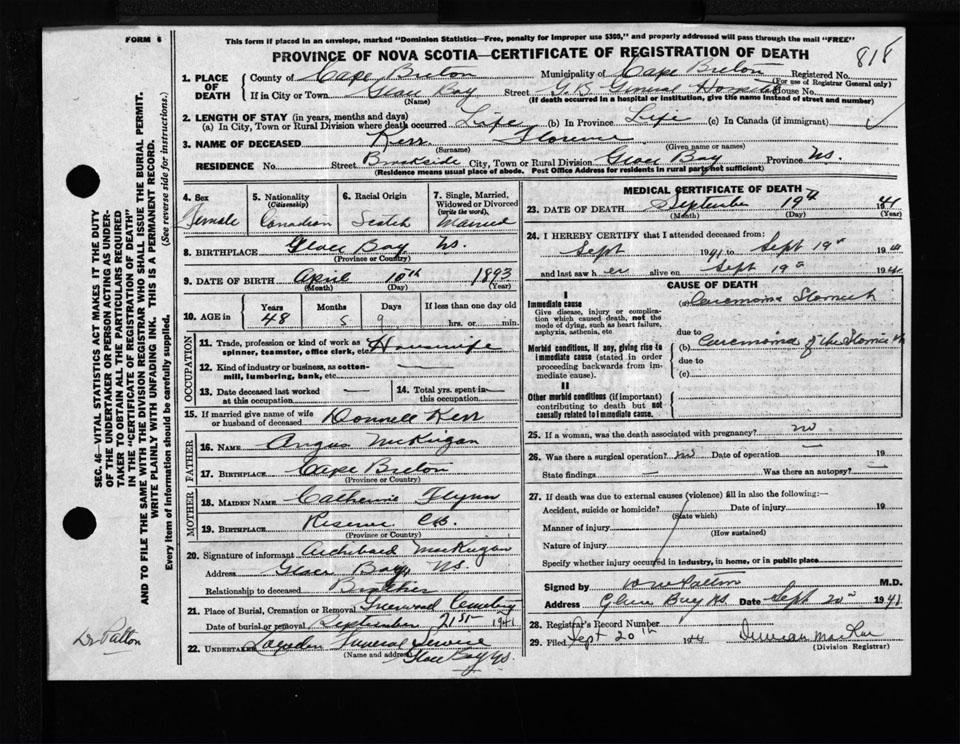 FORM 6
This form if placed in an envelope, marked "Dominion Statistics—Free, penalty for improper use $300," and properly addressed will pass through the mail "FREE"
PROVINCE OF NOVA SCOTIA—CERTIFICATE OF REGISTRATION OF DEATH
818
1. PLACE OF DEATH
County of Cape Breton Municipality of Cape Breton Registered No.
(For use of Registrar General only)
If in City or Town Glace Bay Street G.B. General Hospital House No.
(Name) (If death occurred in a hospital or institution, give the name instead of street and number)
2. LENGTH OF STAY (in years, months and days)
(a) In City, Town or Rural Division where death occurred Life (b) In Province Life (c) In Canada (if immigrant)
3. NAME OF DECEASED Kerr Florence
(Surname) (Given name or names)
RESIDENCE No. Street Brookside City, Town or Rural Division Glace Bay Province N.S.
(Residence means usual place of abode. Post Office Address for residents in rural parts not sufficient)
4. Sex Female
5. Nationality (Citizenship) Canadian
6. Racial Origin Scotch
7. Single, Married, Widowed or Divorced (write the word) Married
8. BIRTHPLACE Glace Bay N.S.
(Province or Country)
9. DATE OF BIRTH April 10th 1893
(Month) (Day) (Year)
10. AGE in Years 48 Months 5 Days 9 If less than one day old hrs. or min.
OCCUPATION
11. Trade, profession or kind of work as spinner, teamster, office clerk, etc. Housewife
12. Kind of industry or business, as cotton-mill, lumbering, bank, etc. —
13. Date deceased last worked at this occupation —
14. Total yrs. spent in this occupation —
15. If married give name of wife or husband of deceased Donnell Kerr
FATHER
16. NAME Angus McKigan
17. BIRTHPLACE Cape Breton
(Province or Country)
MOTHER
18. MAIDEN NAME Catherine Flynn
19. BIRTHPLACE Reserve C.B.
(Province or Country)
20. Signature of informant Archibald MacKigan
Address Glace Bay, N.S.
Relationship to deceased Brother
21. Place of Burial, Cremation or Removal Greenwood Cemetery
Date of burial or removal September 21st 1941
22. UNDERTAKER Funeral Service
(Name and address) Glace Bay N.S.
MEDICAL CERTIFICATE OF DEATH
23. DATE OF DEATH September 19th 1941
(Month) (Day) (Year)
24. I HEREBY CERTIFY that I attended deceased from:
Sept 1941 to Sept 19th 1941
and last saw her alive on Sept 19th 1941
CAUSE OF DEATH
I
Immediate cause
Give disease, injury or complication which caused death, not the mode of dying, such as heart failure, asphyxia, asthenia, etc.
(a) Carcinoma Stomach
due to
Morbid conditions, if any, giving rise to immediate cause (stated in order proceeding backwards from immediate cause).
(b) Carcinoma of the Stomach
due to
(c)
II
Other morbid conditions (if important) contributing to death but not causally related to immediate cause.
25. If a woman, was the death associated with pregnancy? no
26. Was there a surgical operation? no Date of operation — 19
State findings — Was there an autopsy? —
27. If death was due to external causes (violence) fill in also the following:—
Accident, suicide or homicide? Date of injury 19
(State which)
Manner of injury
(How sustained)
Nature of injury
Specify whether injury occurred in industry, in home, or in public place
Signed by Patton M.D.
Address Glace Bay N.S. Date Sept 20th 1941
28. Registrar's Record Number
29. Filed Sept 20th 1941 Duncan MacRae
(Division Registrar)
SEC. 46—VITAL STATISTICS ACT MAKES IT THE DUTY
OF THE UNDERTAKER OR PERSON ACTING AS UNDER-
TAKER TO OBTAIN ALL THE PARTICULARS REQUIRED
IN THE "CERTIFICATE OF REGISTRATION OF DEATH"
AND TO FILE THE SAME WITH THE DIVISION REGISTRAR WHO SHALL ISSUE THE BURIAL PERMIT.
WRITE PLAINLY WITH UNFADING INK. THIS IS A PERMANENT RECORD.
Every item of information should be carefully supplied. (See reverse side for instructions.)
Dr Patton